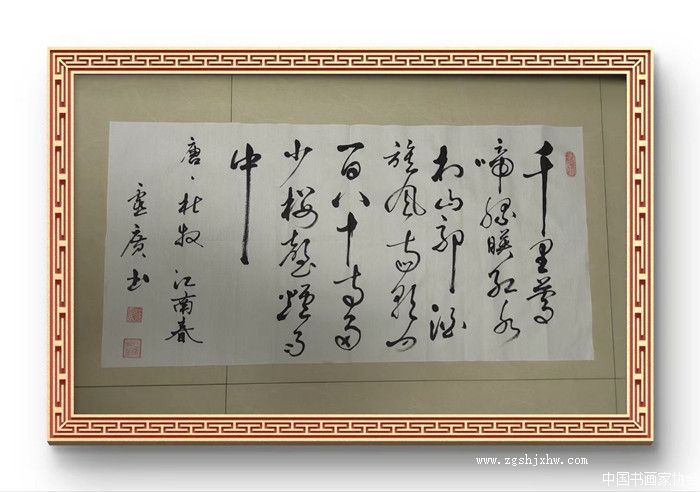 千里鶯
啼綠暎紅水
村山郭酒
旗風南朝四
百八十寺多
少樓臺煙雨
中
唐、杜牧 江南春
廣书
www.zgshjxhw.com
中国书画家协会